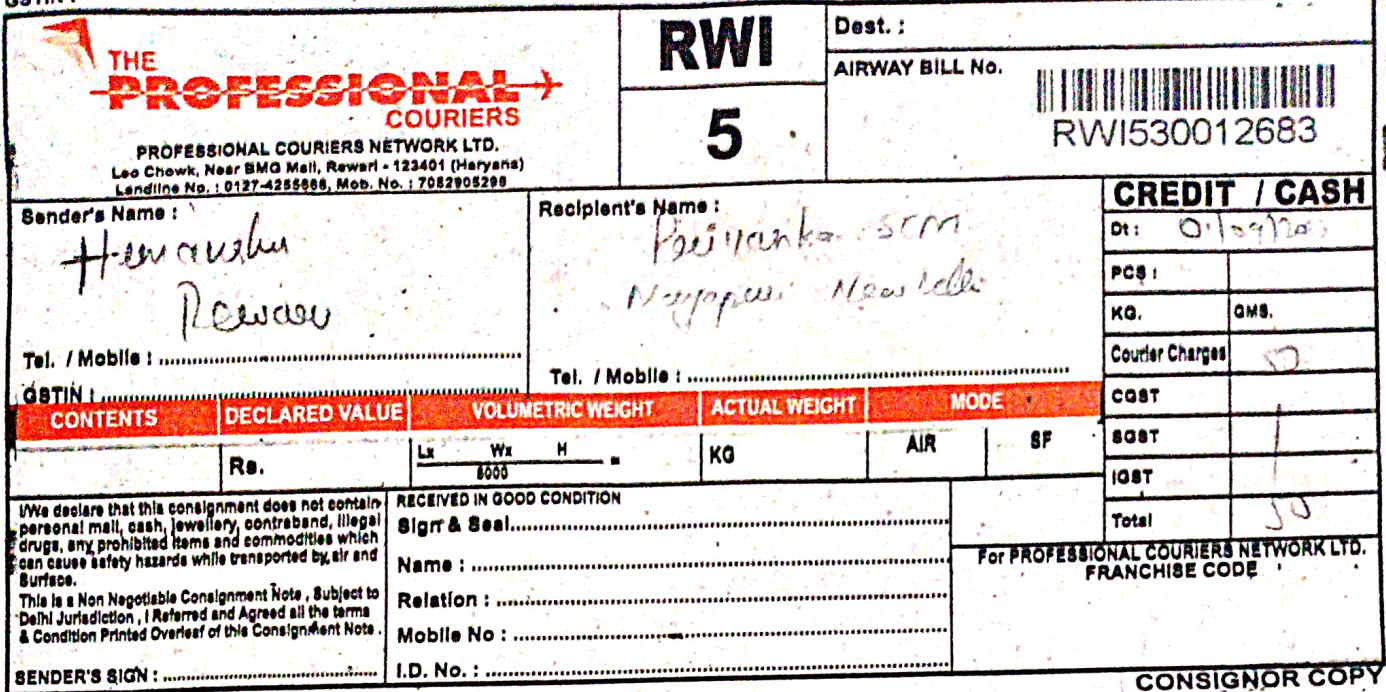 THE
PROFESSIONAL
COURIERS
PROFESSIONAL COURIERS NETWORK LTD.
Leo Chowk, Near BMG Mall, Rewari - 123401 (Haryana)
Landline No. : 0127-4255668, Mob. No. : 7082905298
RWI
5
Dest. :
AIRWAY BILL No.
RWI530012683
Sender's Name :
Himanshu
Rewari
Tel. / Mobile :
GSTIN :
Recipient's Name :
Priyanka SCM
New Delhi
Tel. / Mobile :
CREDIT / CASH
Dt :
PCS :
KG. GMS.
Courier Charges
CGST
SGST
IGST
Total
CONTENTS DECLARED VALUE VOLUMETRIC WEIGHT ACTUAL WEIGHT MODE
Rs. Lx Wx H = KG AIR SF
5000
I/We declare that this consignment does not contain
personal mail, cash, jewellery, contraband, illegal
drugs, any prohibited items and commodities which
can cause safety hazards while transported by, air and
Surface.
This is a Non Negotiable Consignment Note , Subject to
Delhi Jurisdiction , I Referred and Agreed all the terms
& Condition Printed Overleaf of this Consignment Note .
SENDER'S SIGN :
RECEIVED IN GOOD CONDITION
Sign & Seal
Name :
Relation :
Mobile No :
I.D. No. :
For PROFESSIONAL COURIERS NETWORK LTD.
FRANCHISE CODE
CONSIGNOR COPY